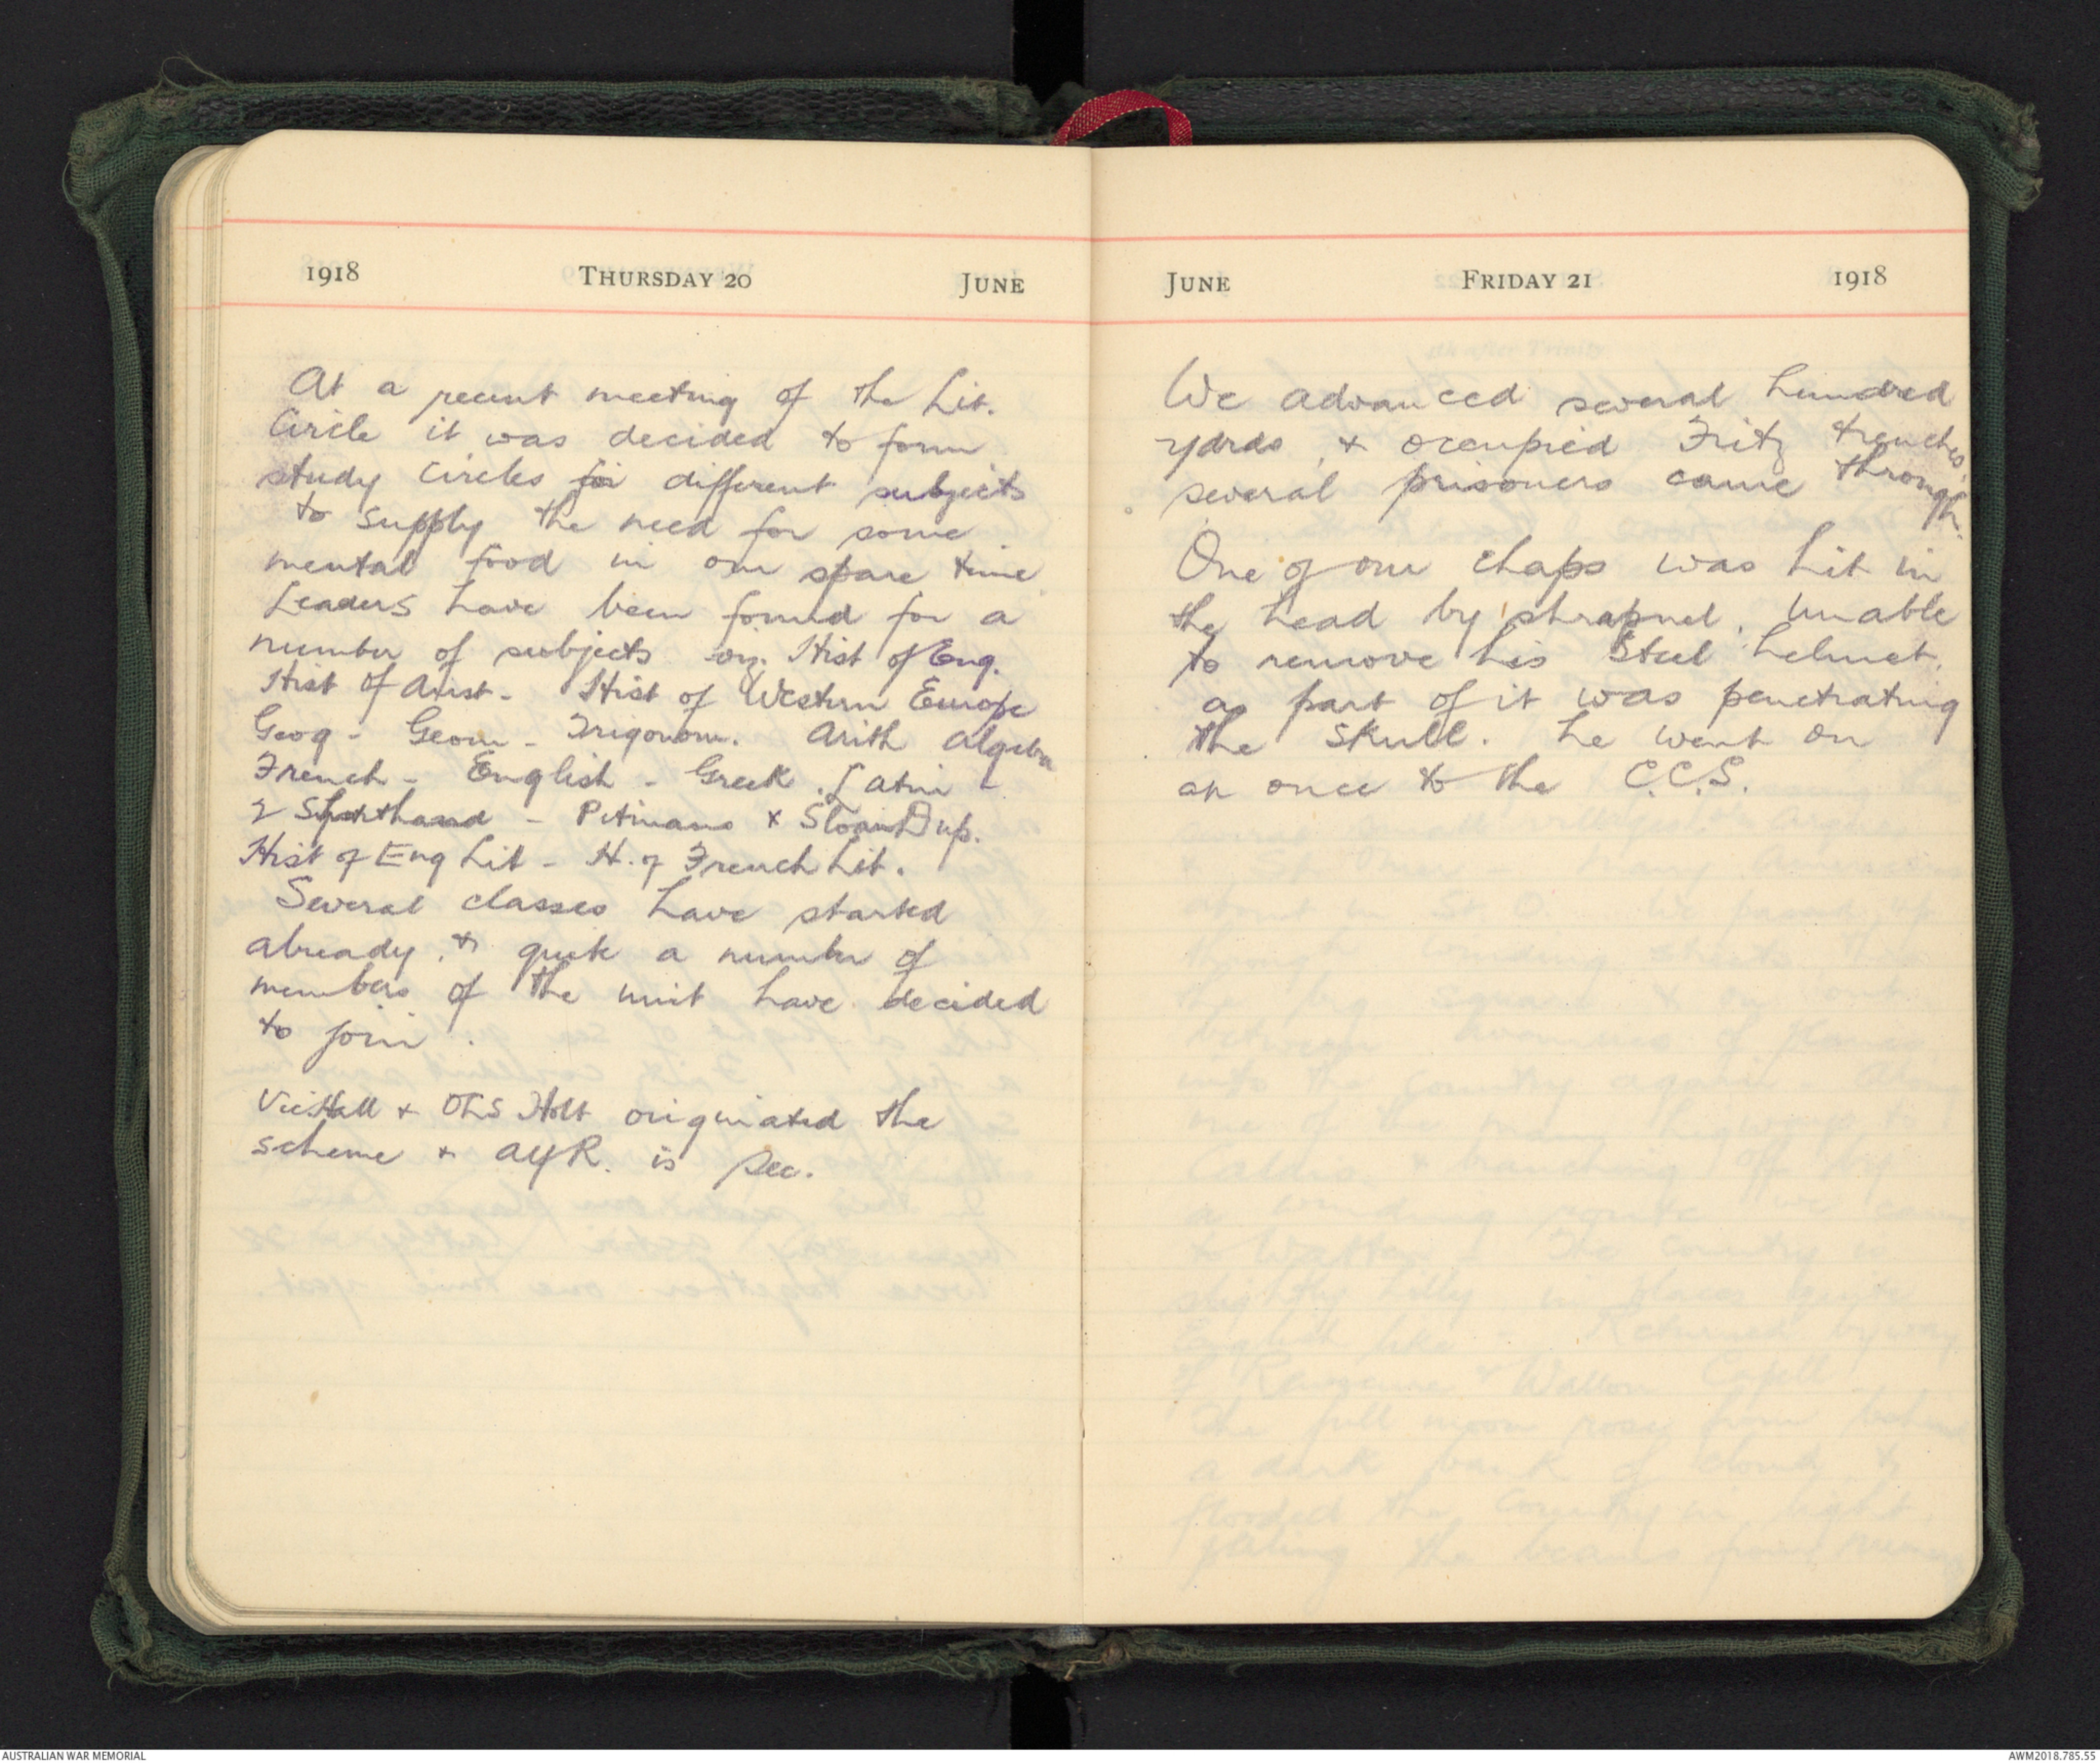 1918 THURSDAY 20 JUNE
At a recent meeting of the Lit.
Circle it was decided to form
study Circles for different subjects
to supply the need for some
mental food in our spare time
Leaders have been found for a
number of subjects viz. Hist of Eng.
Hist of Aust - Hist of Western Europe
Geog - Geom - Trigonom. Arith Algebra
French - English - Greek. Latin
2 Shorthand - Pitmans & Sloan Dup.
Hist of Eng Lit - H. of French Lit.
Several classes have started
already, & quite a number of
members of the unit have decided
to join.
Vic Hall & Holt originated the
scheme & AYR. is Sec.
JUNE FRIDAY 21 1918
We advanced several hundred
yards, & occupied Fritz trenches,
several prisoners came through.
One of our chaps was hit in
the head by shrapnel. Unable
to remove his Steel helmet,
as part of it was penetrating
the skull. he went on
at once to the C.C.S.
AUSTRALIAN WAR MEMORIAL AWM2018.785.55